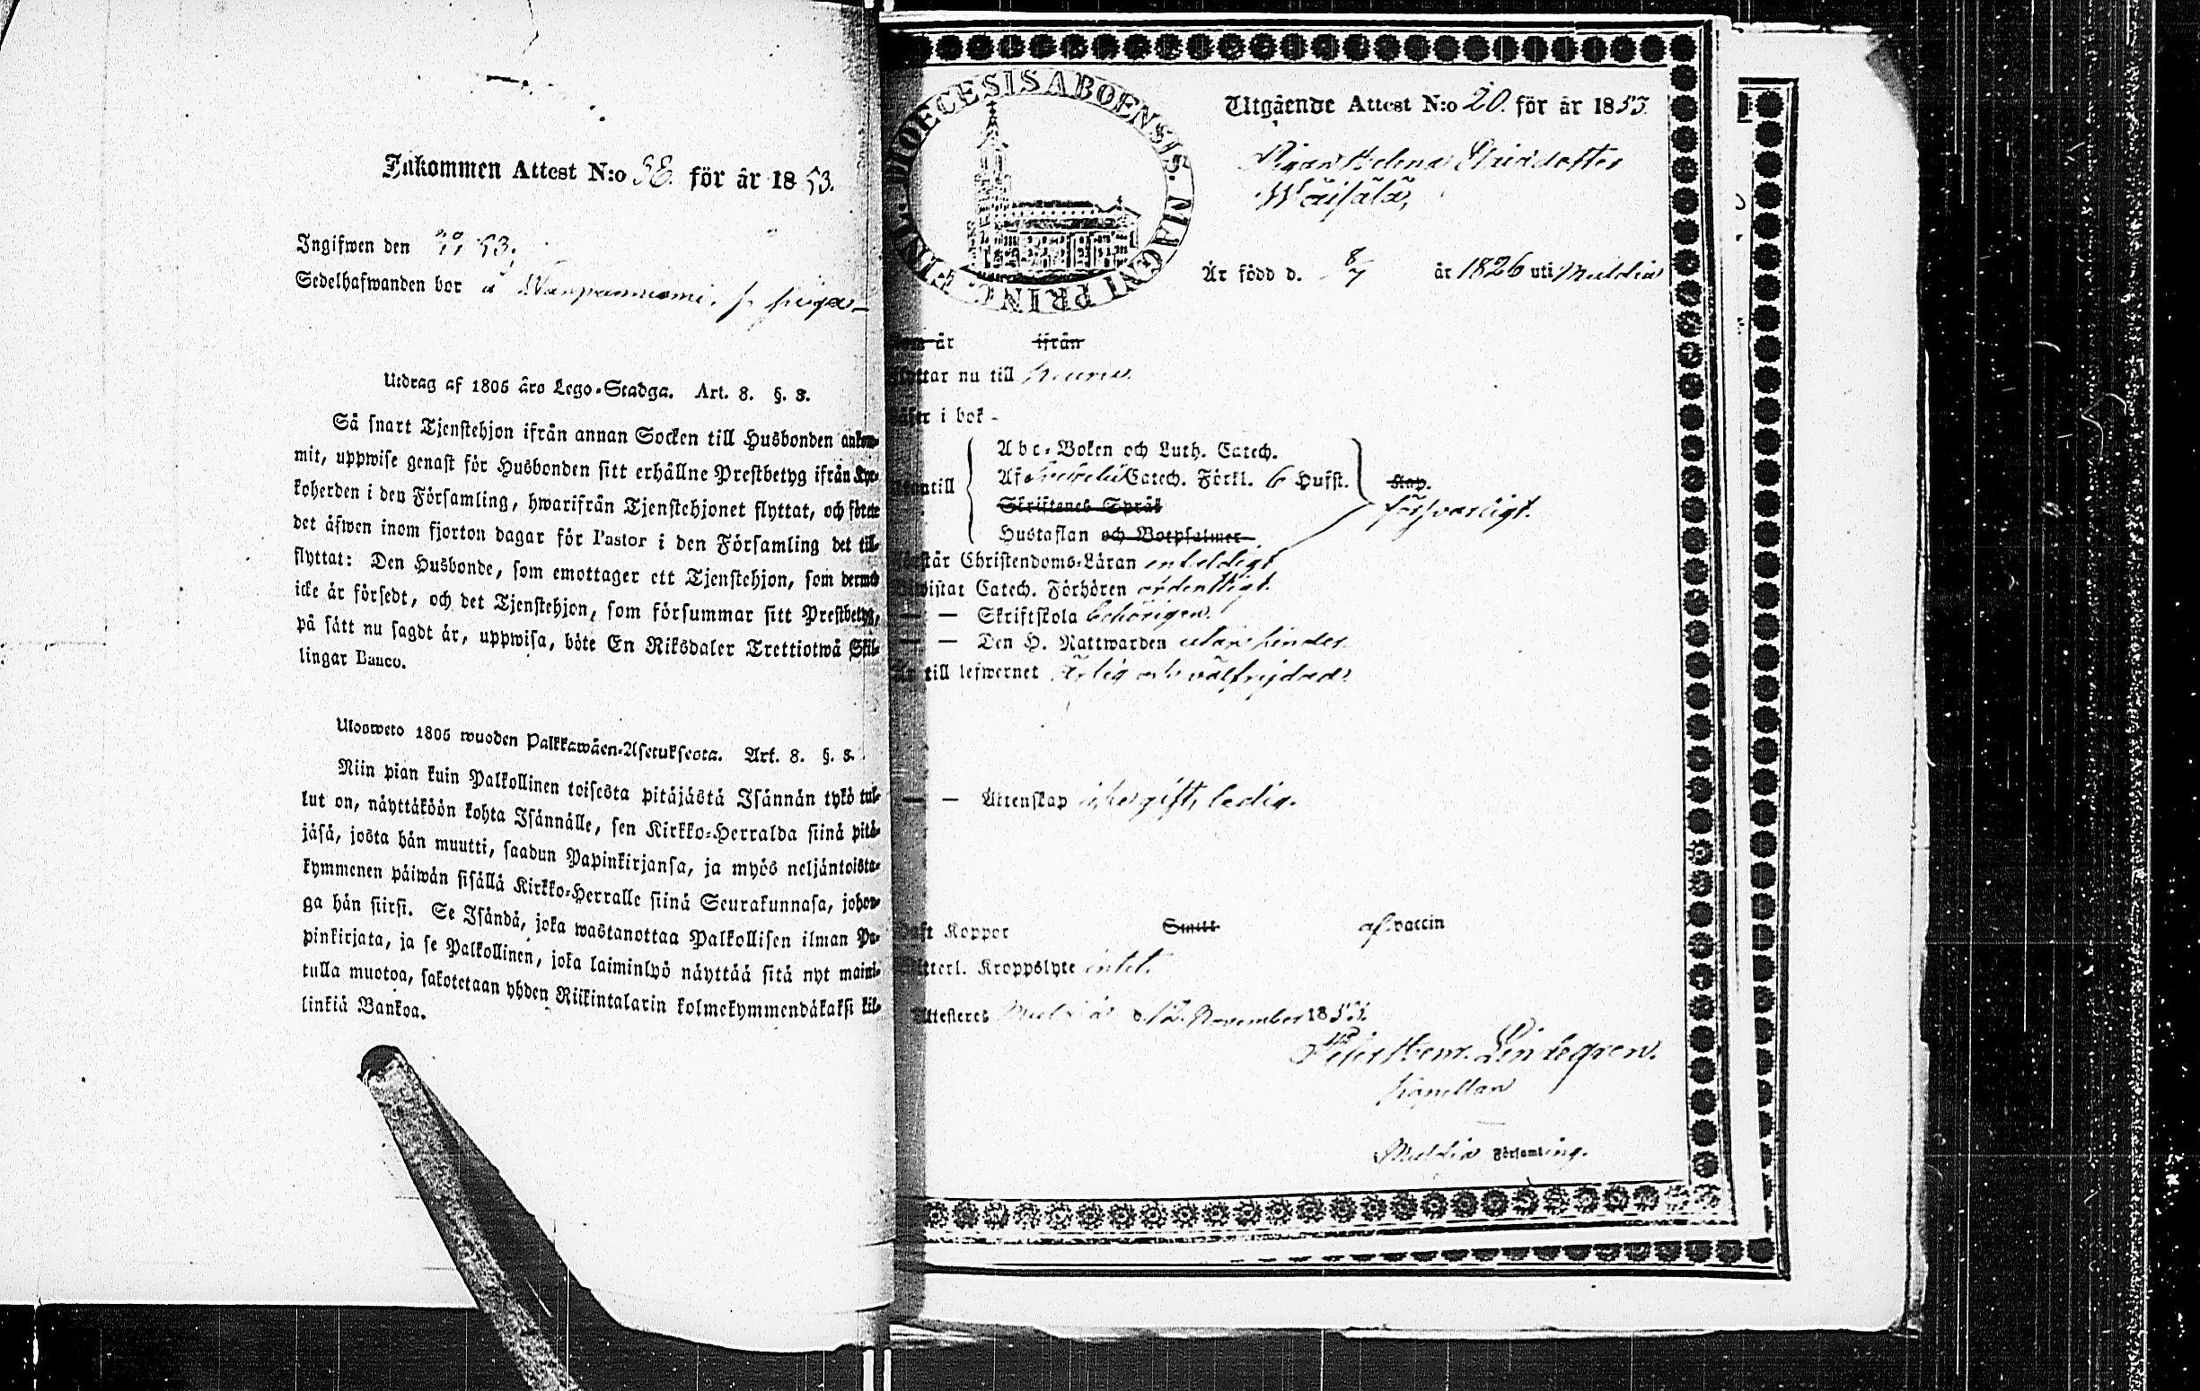 Inkommen Attest N:o för år 1853.
Ingifwen den 53.
Sedelhafwanden bor å
Utdrag af 1805 års Lego-Stadga. Art. 8. §. 3.
Så snart Tjenstehjon ifrån annan Socken till Husbonden ankom-
mit, uppwise genast för Husbonden sitt erhållne Prestbetyg ifrån Kyr-
koherden i den Församling, hwarifrån Tjenstehjonet flyttat, och förete
det äfwen inom fjorton dagar för Pastor i den Församling det till-
flyttat: Den Husbonde, som emottager ett Tjenstehjon, som dermed
icke är försedt, och det Tjenstehjon, som försummar sitt Prestbetyg,
på sätt nu sagdt är, uppwisa, böte En Riksdaler Trettiotwå Skil-
lingar Banco.
Ulosweto 1805 wuoden Palkkawäen-Asetuksesta. Art. 8. §. 3.
Niin pian kuin Palkollinen toisesta pitäjästä Isännän tykö tul-
lut on, näyttäköön kohta Isännälle, sen Kirkko-Herralda siinä pitä-
jäsä, josta hän muutti, saadun Papinkirjansa, ja myös neljäntoista-
kymmenen päiwän sisällä Kirkko-Herralle siinä Seurakunnasa, johon-
ga hän siirsi. Se Isändä, joka wastanottaa Palkollisen ilman Pa-
pinkirjata, ja se Palkollinen, joka laiminlyö näyttää sitä nyt maini-
tulla muotoa, sakotetaan yhden Riikintalarin kolmekymmendäkaksi kil-
linkiä Bankoa.
DIOECESIS ABOENSIS. MAGNI PRINC. FINL.
Utgående Attest N:o 20. för år 1853.
Pigan Helena
Wäisälä,
Är född d. 8/7 år 1826 uti Muldia
är ifrån
nu till
i bok
Abc-Boken och Luth. Catech.
Af Catech. Förkl. 6 Hufst.
Skriftenes Språk
Hustaflan och Botpsalmer
försvarligt.
Christendoms-Läran enfaldigt
Catech. Förhören ordentligt.
— — Skriftskola behörigen.
— — Den H. Nattwarden utan hinder.
till lefwernet Ärlig och välfrejdad
— — Ächtenskap ledig.
Haft Koppor Smitt af vaccin
Kroppslyte intet.
Attesteres Muldia d. 12. November 1853.
Peter Henr. Lindegren.
kapellan
Muldia Församling.